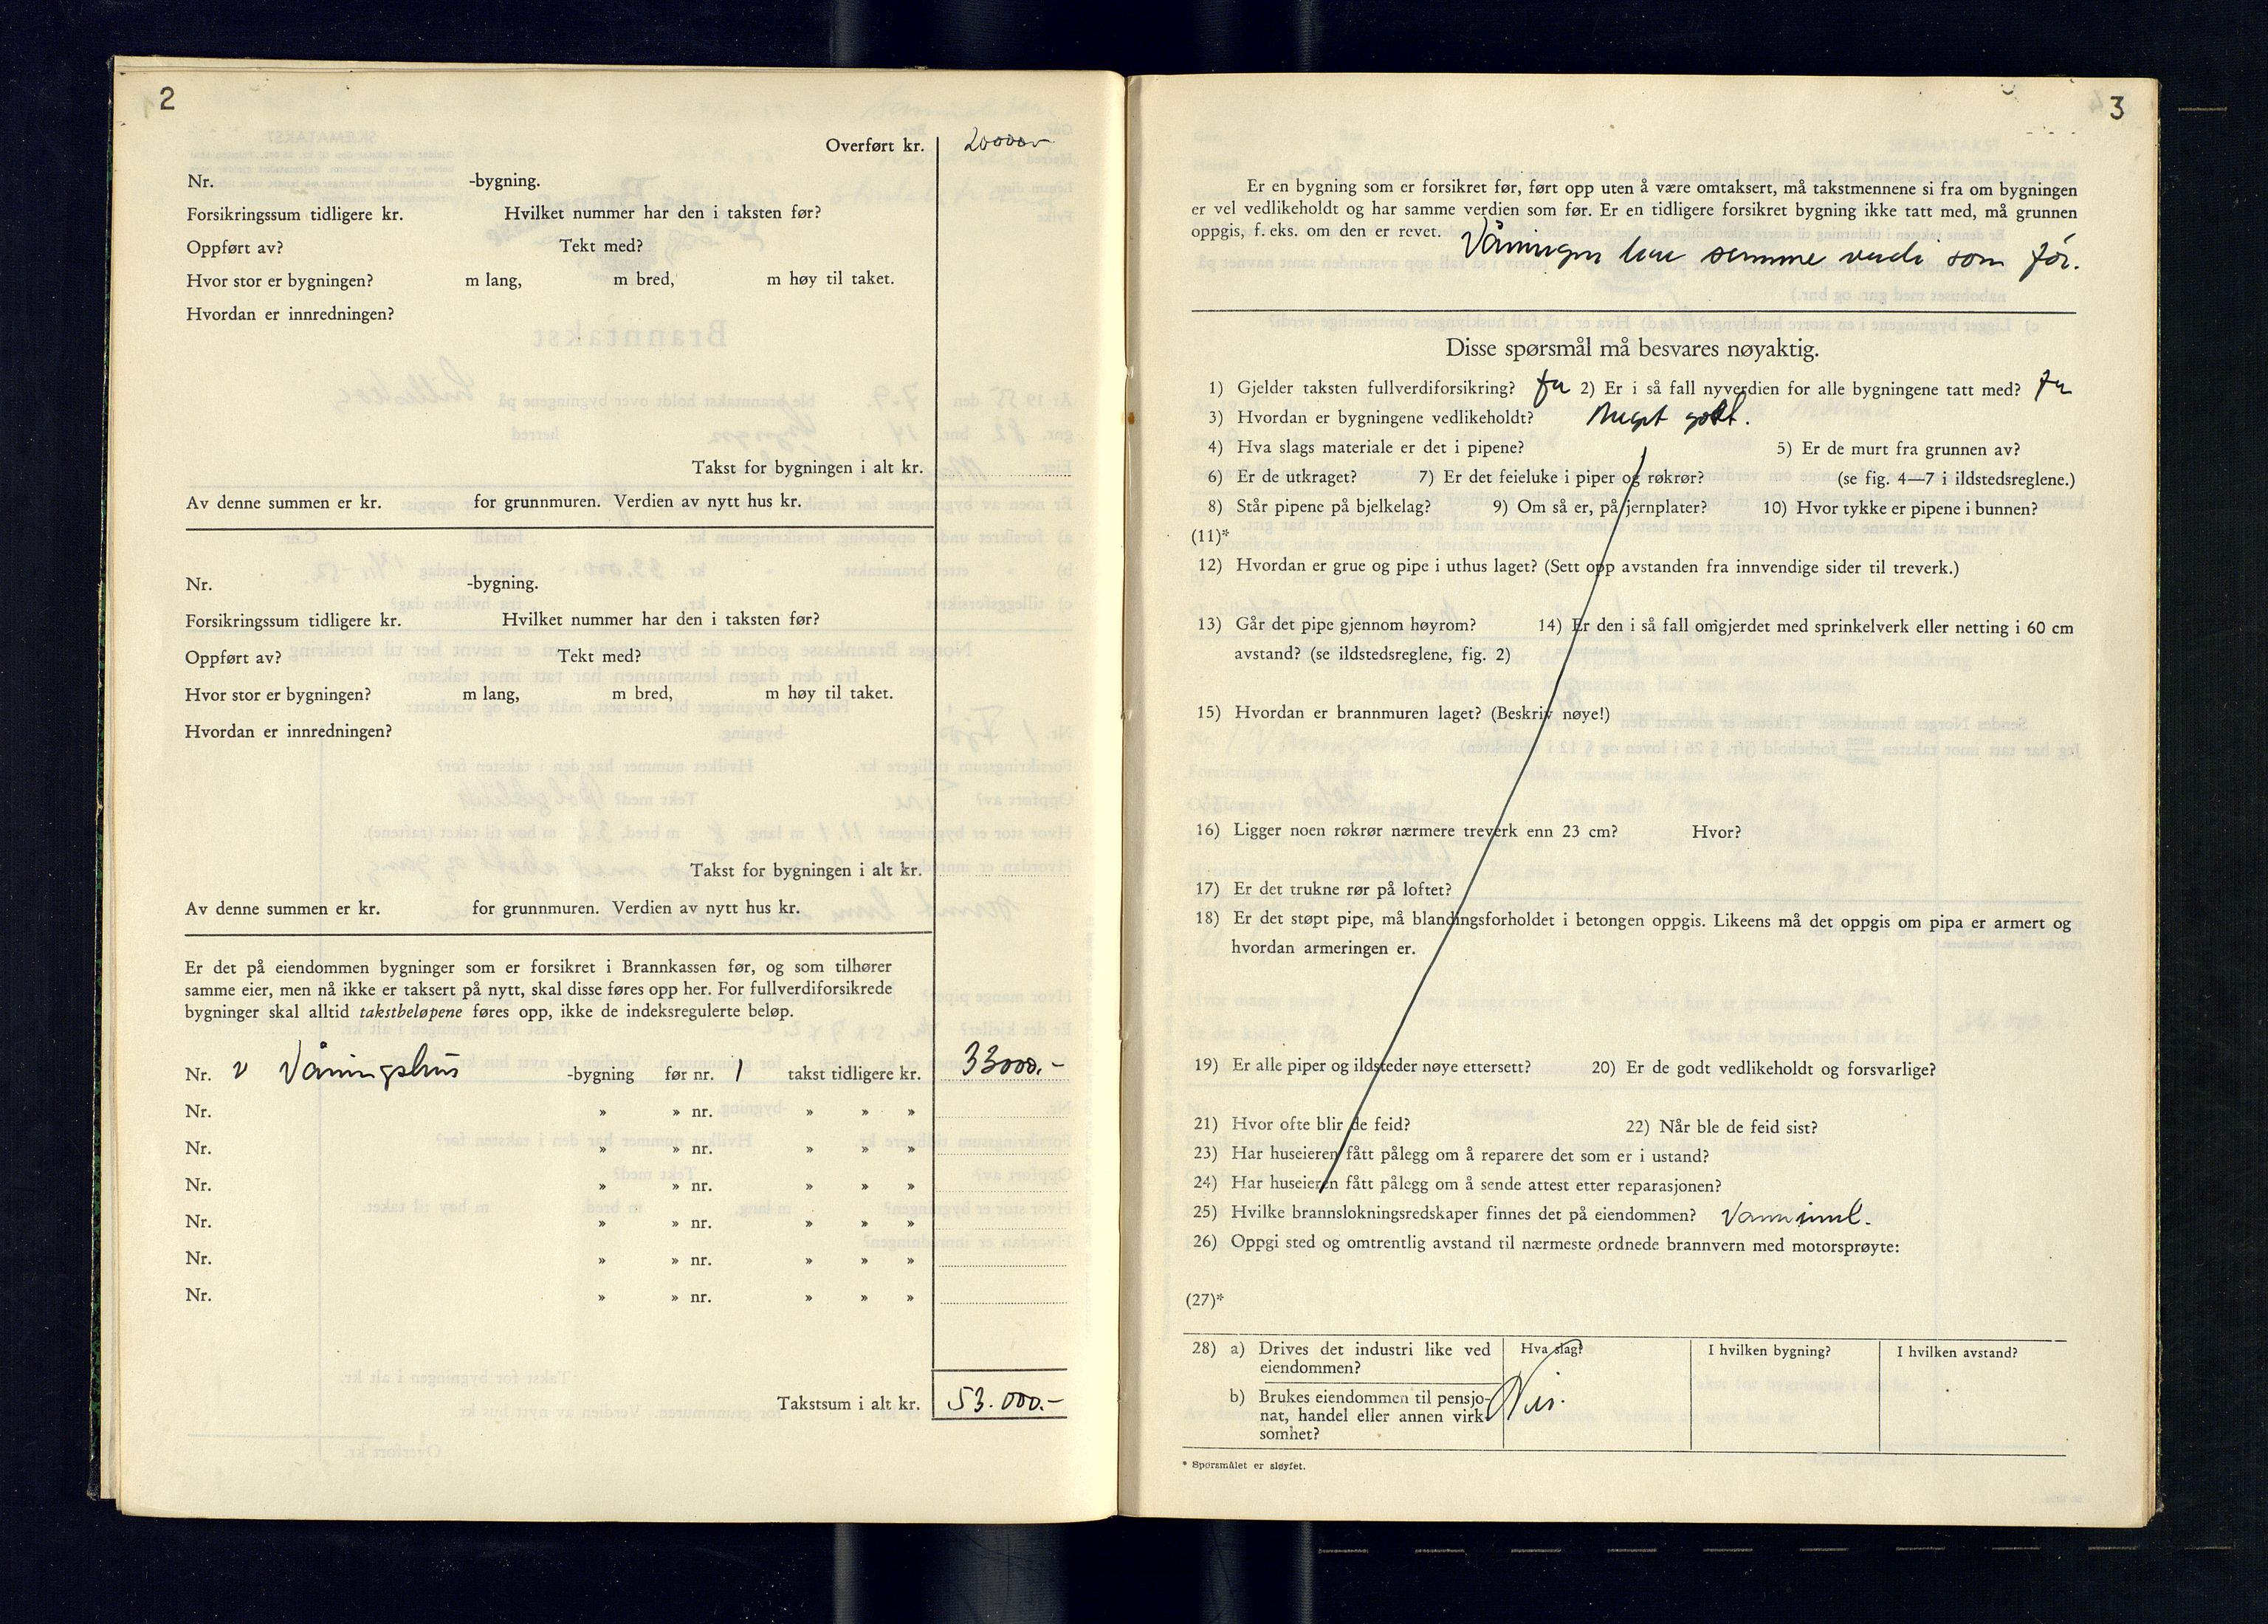 2
Overført kr. 20000
Nr. -bygning.
Forsikringssum tidligere kr. Hvilket nummer har den i taksten før?
Oppført av? Tekt med?
Hvor stor er bygningen? m lang, m bred, m høy til taket.
Hvordan er innredningen?
Takst for bygningen i alt kr.
Av denne summen er kr. for grunnmuren. Verdien av nytt hus kr.
Nr. -bygning.
Forsikringssum tidligere kr. Hvilket nummer har den i taksten før?
Oppført av? Tekt med?
Hvor stor er bygningen? m lang, m bred, m høy til taket.
Hvordan er innredningen?
Takst for bygningen i alt kr.
Av denne summen er kr. for grunnmuren. Verdien av nytt hus kr.
Er det på eiendommen bygninger som er forsikret i Brannkassen før, og som tilhører
samme eier, men nå ikke er taksert på nytt, skal disse føres opp her. For fullverdiforsikrede
bygninger skal alltid takstbeløpene føres opp, ikke de indeksregulerte beløp.
Nr. Våningshus -bygning før nr. 1 takst tidligere kr. 33000.-
Nr. » » nr. » » »
Nr. » » nr. » » »
Nr. » » nr. » » »
Nr. » » nr. » » »
Nr. » » nr. » » »
Nr. » » nr. » » »
Takstsum i alt kr. 53.000.-
3
Er en bygning som er forsikret før, ført opp uten å være omtaksert, må takstmennene si fra om bygningen
er vel vedlikeholdt og har samme verdien som før. Er en tidligere forsikret bygning ikke tatt med, må grunnen
oppgis, f. eks. om den er revet. Våningen har samme verdi som før.
Disse spørsmål må besvares nøyaktig.
1) Gjelder taksten fullverdiforsikring? Ja 2) Er i så fall nyverdien for alle bygningene tatt med? Ja
3) Hvordan er bygningene vedlikeholdt? Meget godt.
4) Hva slags materiale er det i pipene? 5) Er de murt fra grunnen av?
6) Er de utkraget? 7) Er det feieluke i piper og røkrør? (se fig. 4—7 i ildstedsreglene.)
8) Står pipene på bjelkelag? 9) Om så er, på jernplater? 10) Hvor tykke er pipene i bunnen?
(11)*
12) Hvordan er grue og pipe i uthus laget? (Sett opp avstanden fra innvendige sider til treverk.)
13) Går det pipe gjennom høyrom? 14) Er den i så fall omgjerdet med sprinkelverk eller netting i 60 cm
avstand? (se ildstedsreglene, fig. 2)
15) Hvordan er brannmuren laget? (Beskriv nøye!)
16) Ligger noen røkrør nærmere treverk enn 23 cm? Hvor?
17) Er det trukne rør på loftet?
18) Er det støpt pipe, må blandingsforholdet i betongen oppgis. Likeens må det oppgis om pipa er armert og
hvordan armeringen er.
19) Er alle piper og ildsteder nøye ettersett? 20) Er de godt vedlikeholdt og forsvarlige?
21) Hvor ofte blir de feid? 22) Når ble de feid sist?
23) Har huseieren fått pålegg om å reparere det som er i ustand?
24) Har huseieren fått pålegg om å sende attest etter reparasjonen?
25) Hvilke brannslokningsredskaper finnes det på eiendommen?
26) Oppgi sted og omtrentlig avstand til nærmeste ordnede brannvern med motorsprøyte:
(27)*
28) a) Drives det industri like ved Hva slag? I hvilken bygning? I hvilken avstand?
eiendommen?
b) Brukes eiendommen til pensjo-
nat, handel eller annen virk-
somhet?
* Spørsmålet er sløyfet.